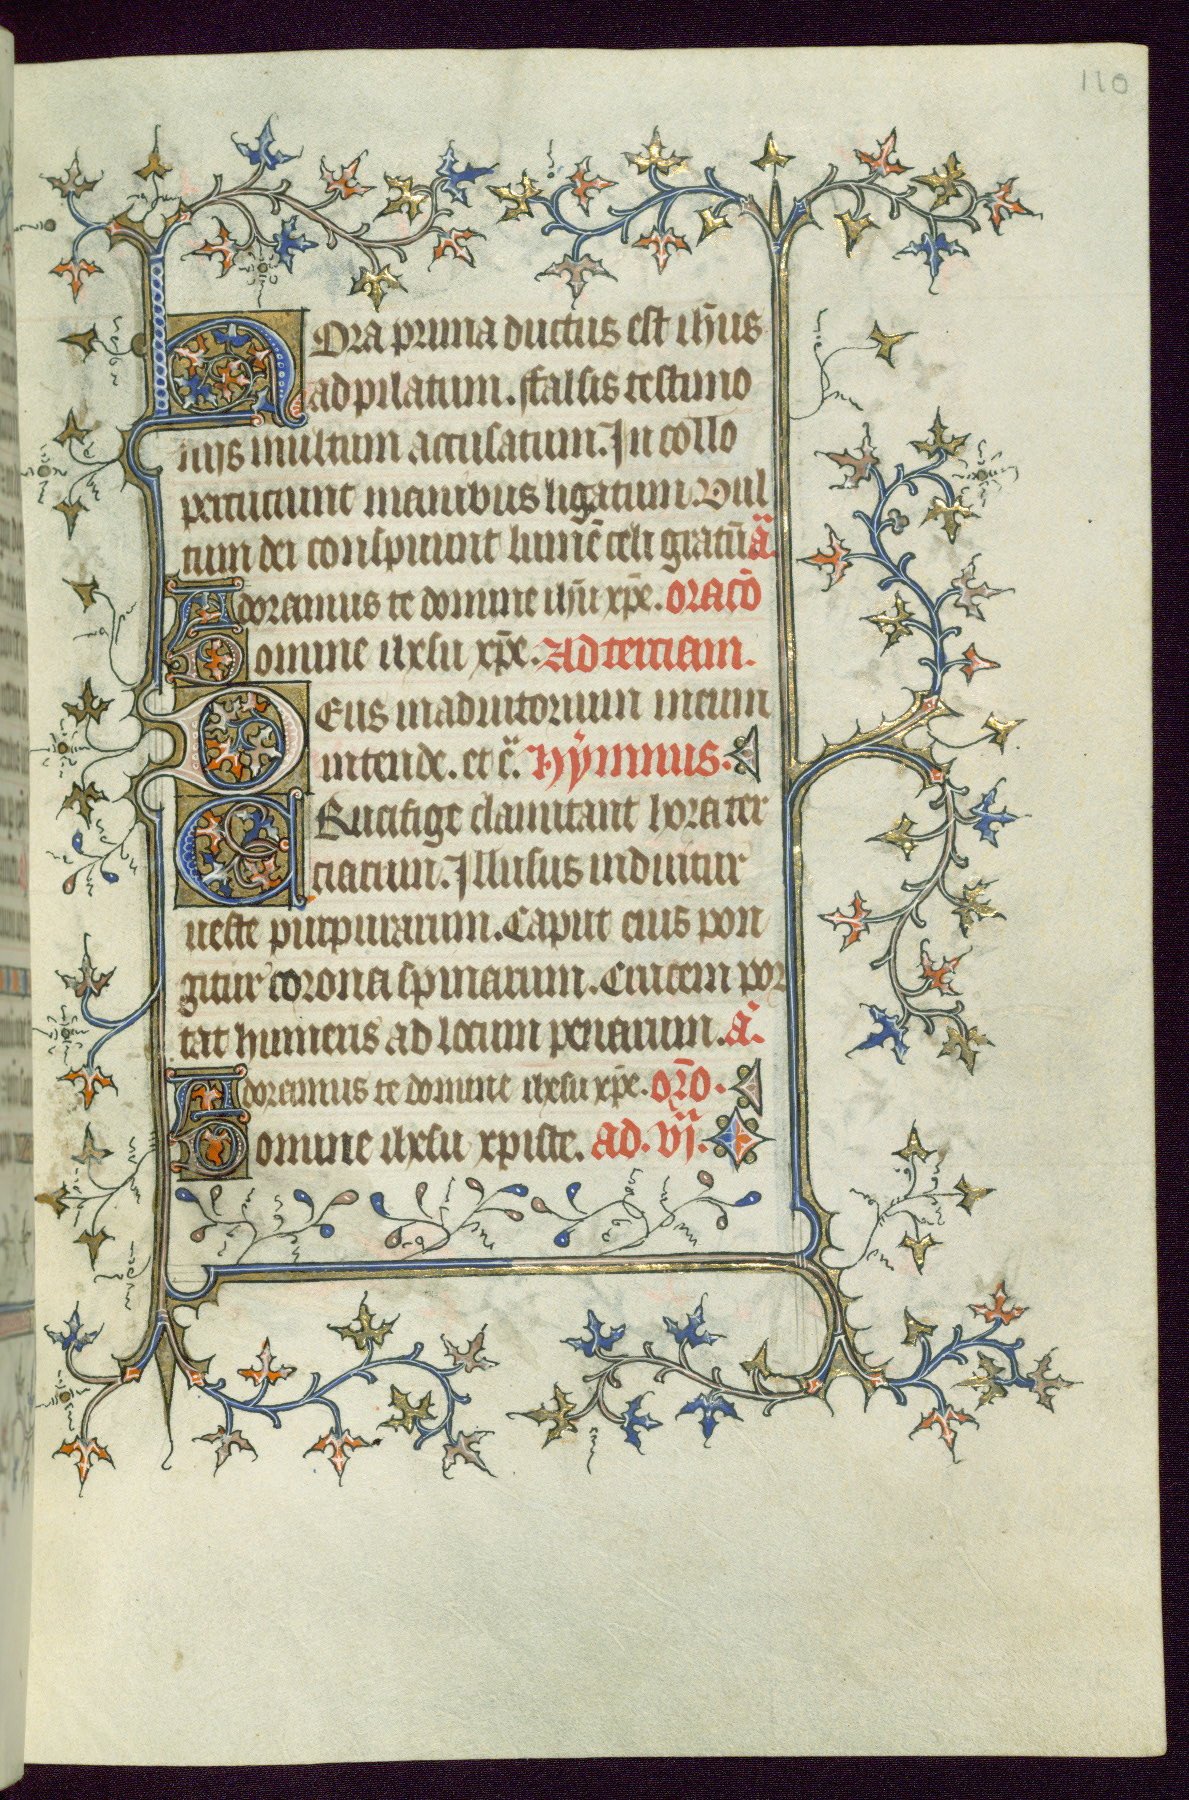 110
Hora prima ductus est ih̄us
ad pilatum. ffalsis testimo
niis multum accusatum. In collo
percutiunt manibus ligatum. Vul
tum dei conspuunt lumē celi gratū a̅.
Adoramus te domine ihū xp̄e. oracō
Domine ihesu xp̄e. Ad terciam.
Deus in adiutorium meum
intende. et c̄. Hẏmnus.
Crucifige clamitant hora ter
ciarum. Illusus induitur
ueste purpurarum. Caput eius pon
gitur corona spinarum. Crucem por
tat humeris ad locum penarum. a̅.
Adoramus te domine ihesu xp̄e. or̄o.
Domine ihesu xpiste. ad. vi.